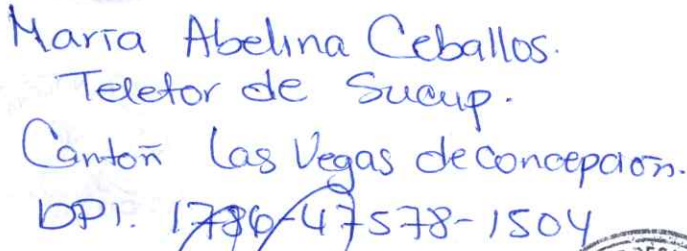 María Abelina Ceballos.
Teletor de Sucup.
Cantón Las Vegas de concepción.
DPI. 1786-47578-1504